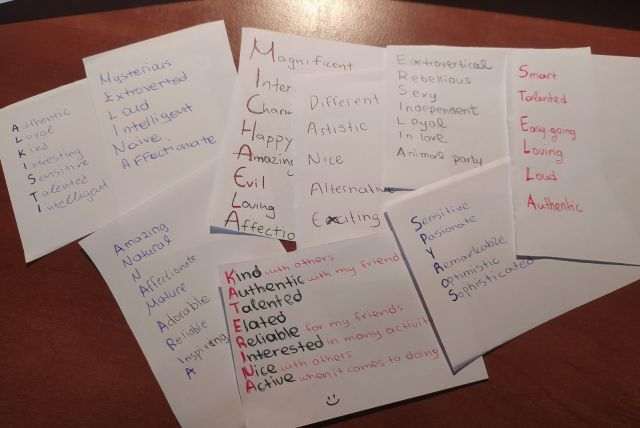 Authentic
Loyal
Kind
Sensitive
Talented
Intelligent
Mysterious
Extroverted
Loud
Intelligent
Naive
Affectionate
Magnificent
Inter
Charm
Happy
Amazing
Evil
Loving
Affectio
Different
Artistic
Nice
Alternative
Exciting
Extrovertical
Rebelious
Sexy
Loyal
In love
Animal party
Smart
Talented
Easy-going
Loving
Loud
Authentic
Amazing
Natural
N
Affectionate
Mature
Adorable
Reliable
Inspireng
A
Kind with others
Authentic with my friend
Talented
Elated
Reliable for my friends
Interested in many activit
Nice with others
Active when it comes to doing
Sensitive
Pasionate
Y
Remarkable
Optimistic
Sophisticated